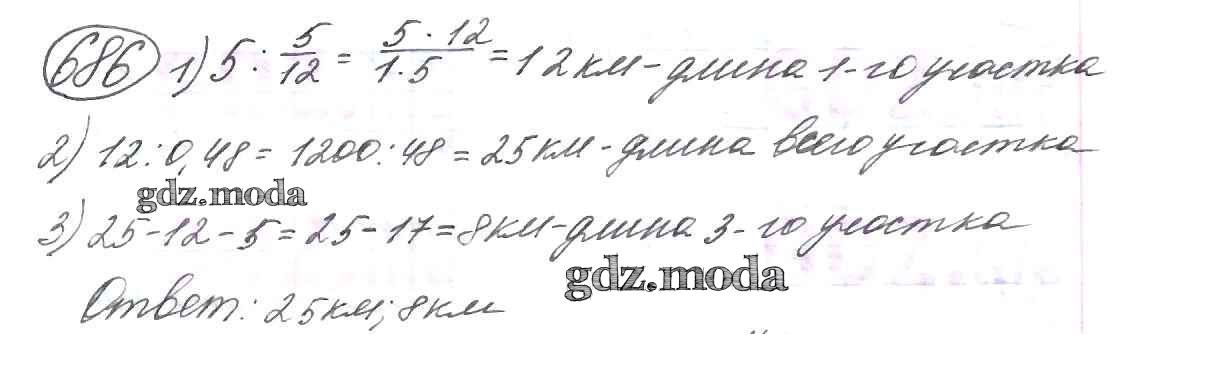 686 1) 5 : 5/12 = 5 · 12/1 · 5 = 12 км - длина 1-го участка
2) 12 : 0,48 = 1200 : 48 = 25 км - длина всего участка
gdz.moda
3) 25 - 12 - 5 = 25 - 17 = 8 км - длина 3-го участка
gdz.moda
Ответ: 25 км; 8 км